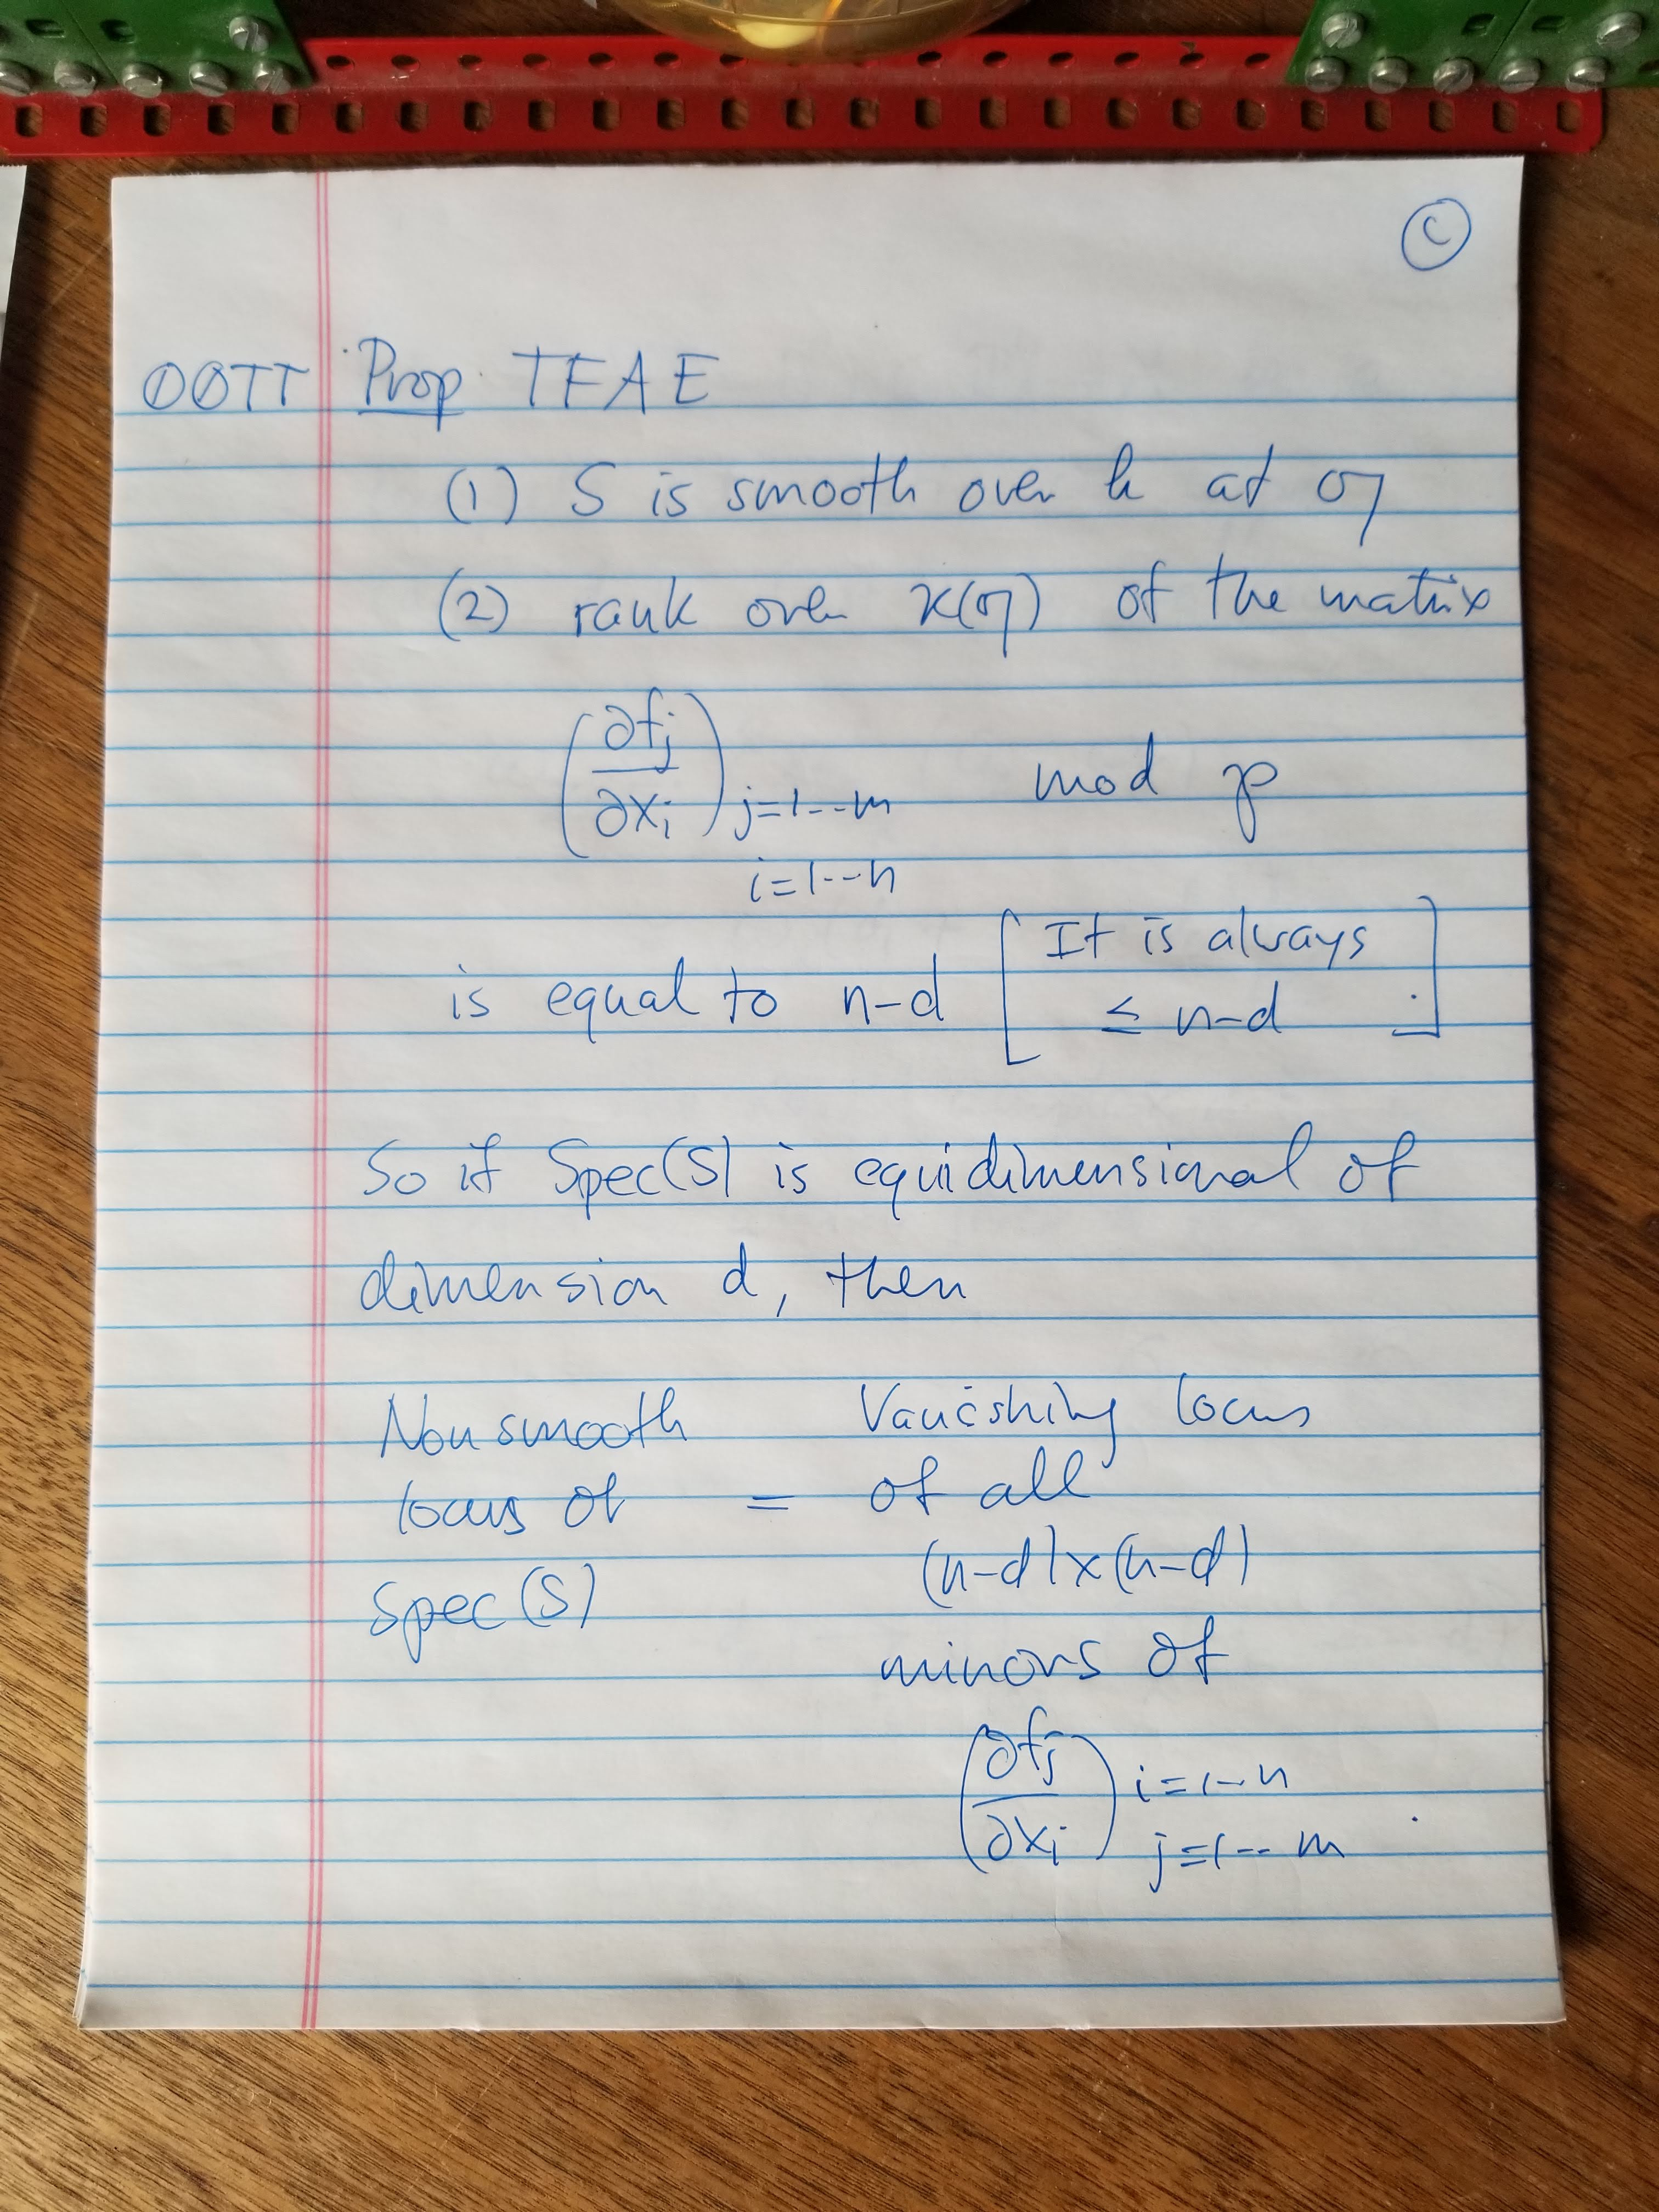 C
00TT Prop TFAE
(1) S is smooth over k at 𝔮
(2) rank over κ(𝔮) of the matrix
(∂fj/∂xi) j=1--m mod 𝔭
i=1--n
is equal to n-d [It is always
≤ n-d.]
So if Spec(S) is equidimensional of
dimension d, then
Nonsmooth
locus of
Spec(S)
=
Vanishing locus
of all
(n-d)×(n-d)
minors of
(∂fj/∂xi) i=1--n
j=1--m